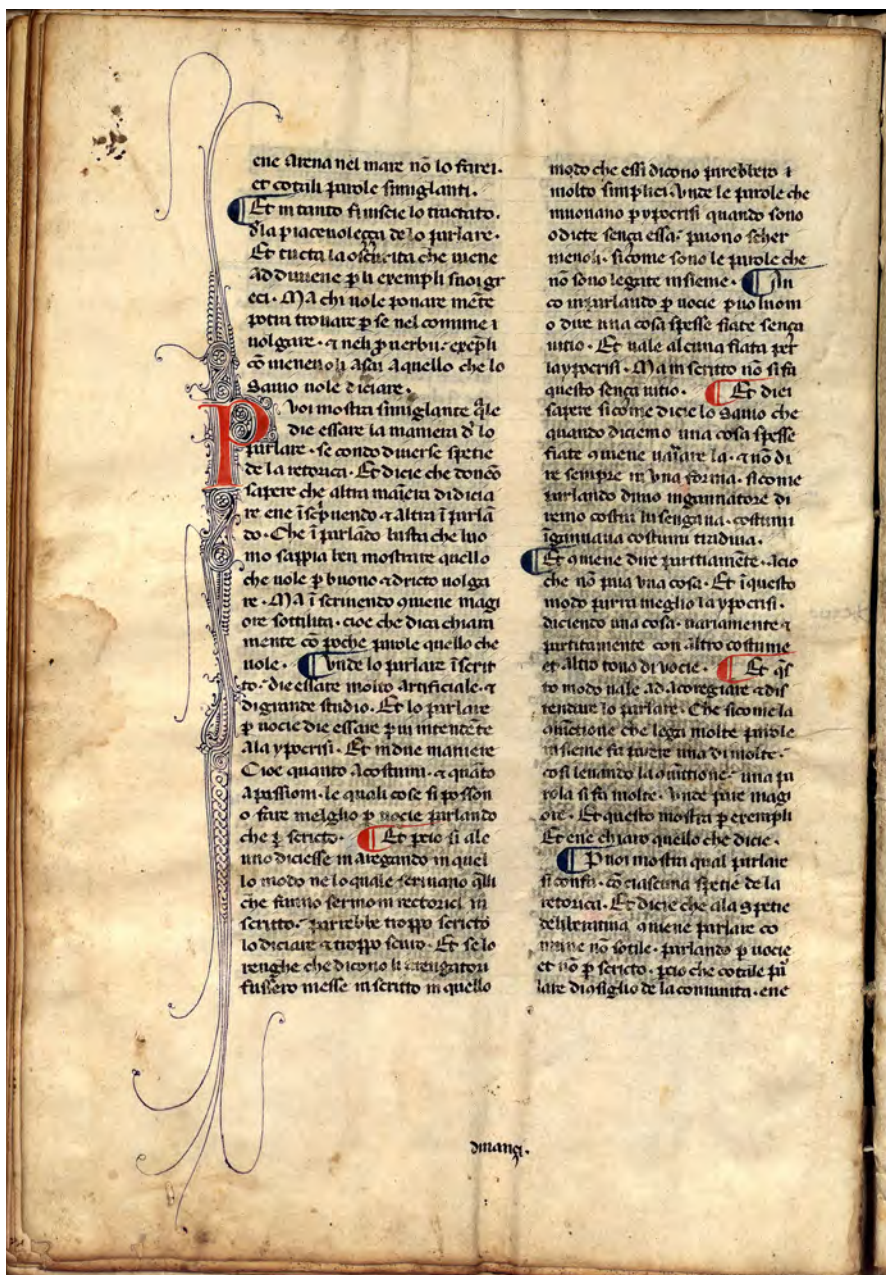 ene arena nel mare nõ lo farei.
et cotali parole simiglanti.
¶ Et in tanto finiscie lo tractato.
d'la piacevoleçça de lo parlare.
Et tucta la oscurita che viene
ad divenire p li exempli suoi gr
eci. Ma chi vole ponare mẽte
potra trovare p se nel comune i
volgare. ⁊ neli pverbii. exẽpli
cõ menevoli asai aquello che lo
savio vole diciare.
Puoi mostra simiglante q̃le
die essare la maniera d' lo
parlare. se condo diverse spetie
de la retorica. Et dicie che doncõ
sapere che altra maĩera di dicia
re ene ĩ scrivendo ⁊ altra ĩ parlã
do. Che ĩ parlãdo basta che luo
mo sappia ben mostrare quello
che vole p buono ⁊ dricto volga
re. Ma ĩ scrivendo 9viene magi
ore sottilita. cioe che dica chiara
mente cõ poche parole quello che
vole. ¶ Unde lo parlare ĩ scrit
to. die essare molto artificiale. ⁊
di grande studio. Et lo parlare
p vocie die essare piu intendẽte
ala ypocrisi. Et in due maniere
Cioe quanto a costumi. ⁊ quãto
a passioni. le quali cose si posson
o fare melglio p vocie parlando
che p scricto. ¶ Et pcio si alc
uno diciesse in aregando in quel
lo modo ne lo quale scrivano q̃lli
che fanno sermoni rectorici in
scritto. parrebbe troppo scricto
lo diciare ⁊ troppo savio. Et se lo
renghe che dicono li arengatori
fussero messe in scritto in quello
modo che essi dicono parebbero i
molto simplici. Unde le parole che
muovano p ypocrisi quando sono
o dicte sença essa. paiono scher
nievoli. si come sono le parole che
nõ sono legate insieme. ¶ An
co in parlando p vocie puo luom
o dire una cosa spesse fiate sença
vitio. Et vale alcuna fiata per
la ypocrisi. Ma in scritto nõ si fa
questo sença vitio. ¶ Et diei
sapere si come dicie lo savio che
quando diciemo una cosa spesse
fiate 9viene variare la. ⁊ nõ di
re sempre in una forma. si come
parlando di uno ingannatore di
remo costui lusengava. costui
ĩgannava costui tradiva.
¶ Et 9viene dire partitamẽte. acio
che nõ paia una cosa. Et ĩ questo
modo parra meglio la ypocrisi.
diciendo una cosa. variamente ⁊
partitamente con altro costume
et altro tono di vocie. ¶ Et q̃s
to modo vale ad acoregiare ⁊ dis
tendare lo parlare. Che si come la
9iũctione che lega molte parole
insieme fa parere una di molte.
cosi levando la 9iũtione. una pa
rola si fa molte. Unde pare magi
ore. Et questo mostra p exempli
Et ene chiaro quello che dicie.
¶ Puoi mostra qual parlare
si confa. cõ ciascuna spetie de la
retorica. Et dicie che ala spetie
deliberativa 9viene parlare co
mune nõ sotile. parlando p vocie
et nõ p scricto. pcio che cotale pa
lare di 9siglio de la comunita. ene
dinançi.